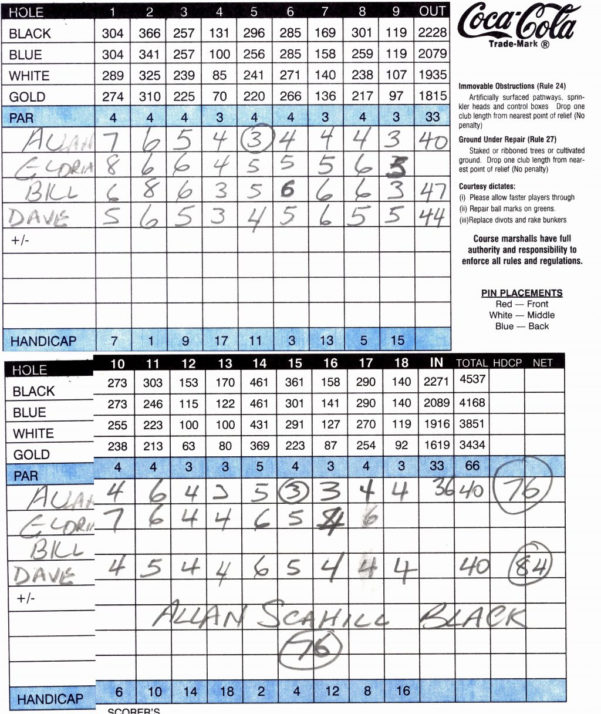 HOLE 1 2 3 4 5 6 7 8 9 OUT
BLACK 304 366 257 131 296 285 169 301 119 2228
BLUE 304 341 257 100 256 285 158 259 119 2079
WHITE 289 325 239 85 241 271 140 238 107 1935
GOLD 274 310 225 70 220 266 136 217 97 1815
PAR 4 4 4 3 4 4 3 4 3 33
ALLAN 7 6 5 4 3 4 4 4 3 40
GLORIA 8 6 6 4 5 5 5 6 3
BILL 6 8 6 3 5 6 6 6 3 47
DAVE 5 6 5 3 4 5 6 5 5 44
+/-
HANDICAP 7 1 9 17 11 3 13 5 15
Coca-Cola
Trade-Mark ®
Immovable Obstructions (Rule 24)
Artificially surfaced pathways, sprin-
kler heads and control boxes Drop one
club length from nearest point of relief (No
penalty)
Ground Under Repair (Rule 27)
Staked or ribboned trees or cultivated
ground. Drop one club length from near-
est point of relief (No penalty)
Courtesy dictates:
(i) Please allow faster players through
(ii) Repair ball marks on greens.
(iii)Replace divots and rake bunkers
Course marshalls have full
authority and responsibility to
enforce all rules and regulations.
PIN PLACEMENTS
Red — Front
White — Middle
Blue — Back
HOLE 10 11 12 13 14 15 16 17 18 IN TOTAL HDCP NET
BLACK 273 303 153 170 461 361 158 290 140 2271 4537
BLUE 273 246 115 122 461 301 141 290 140 2089 4168
WHITE 255 223 100 100 431 291 127 270 119 1916 3851
GOLD 238 213 63 80 369 223 87 254 92 1619 3434
PAR 4 4 3 3 5 4 3 4 3 33 66
ALLAN 4 6 4 3 5 3 3 4 4 36 40 76
GLORIA 7 6 4 4 6 5 4 6
BILL
DAVE 4 5 4 4 6 5 4 4 4 40 84
+/-
ALLAN SCAHILL BLACK
76
HANDICAP 6 10 14 18 2 4 12 8 16
SCORER'S